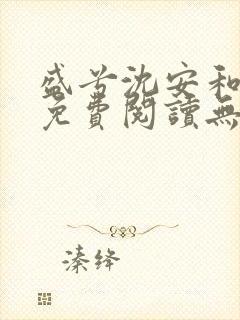 盛苦沈安和
免費閱讀無
溱绛